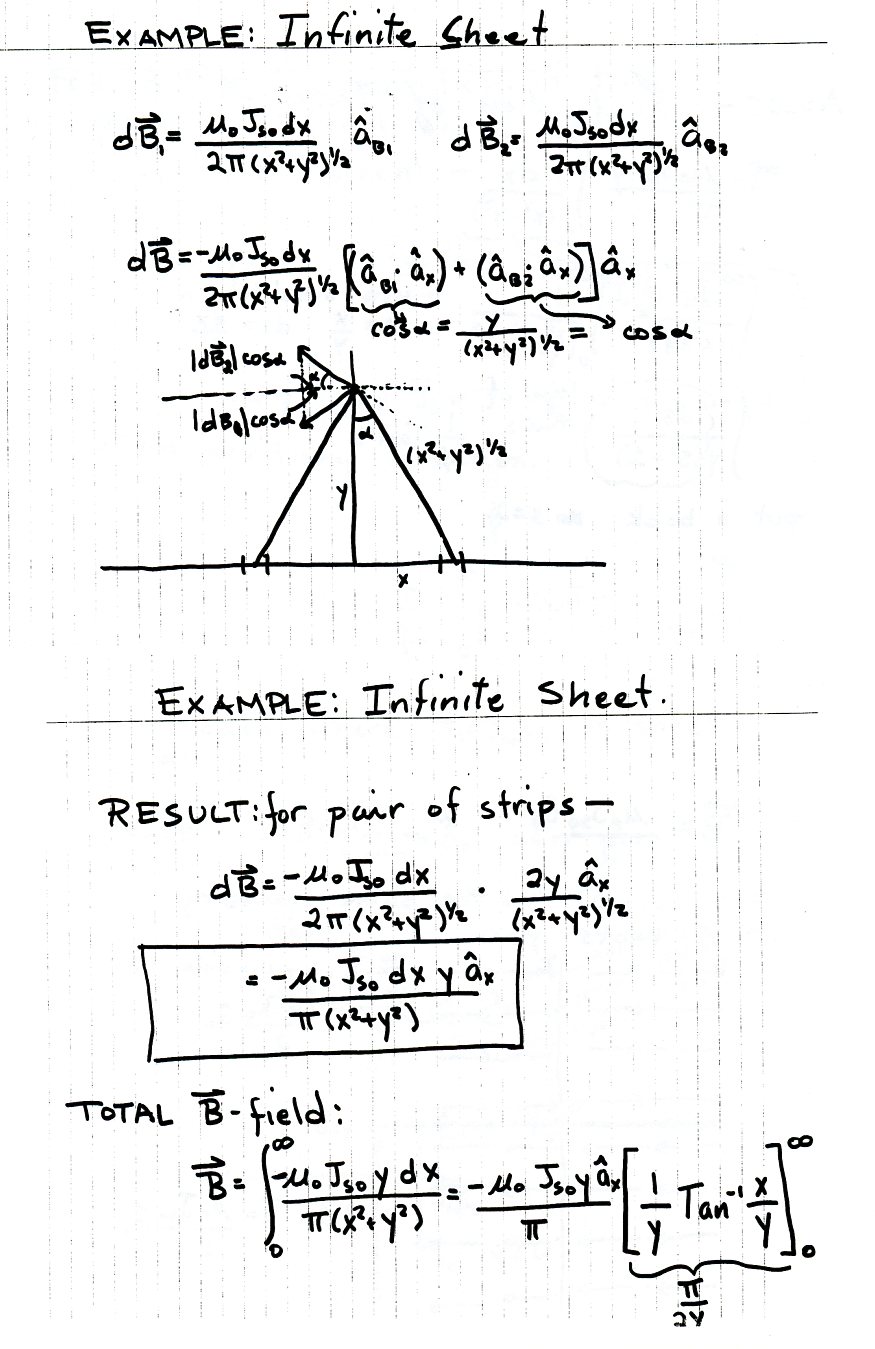 EXAMPLE: Infinite Sheet
dB⃗₁ = μ₀ J_so dx / 2π(x²+y²)^½ â_B₁    dB⃗₂ = μ₀ J_so dx / 2π(x²+y²)^½ â_B₂
dB⃗ = -μ₀ J_so dx / 2π(x²+y²)^½ [(â_B₁ · â_x) + (â_B₂ · â_x)] â_x
cosα = y / (x²+y²)^½ = cosα
|dB⃗₂| cosα
α
|dB₁| cosα
α
(x²+y²)^½
y
x
EXAMPLE: Infinite Sheet.
RESULT: for pair of strips —
dB⃗ = -μ₀ J_so dx / 2π(x²+y²)^½ · 2y â_x / (x²+y²)^½
= -μ₀ J_so dx y â_x / π(x²+y²)
TOTAL B⃗-field:
B⃗ = ∫₀^∞ -μ₀ J_so y dx / π(x²+y²) = -μ₀ J_so y â_x / π [1/y Tan⁻¹ x/y]₀^∞
π/2y